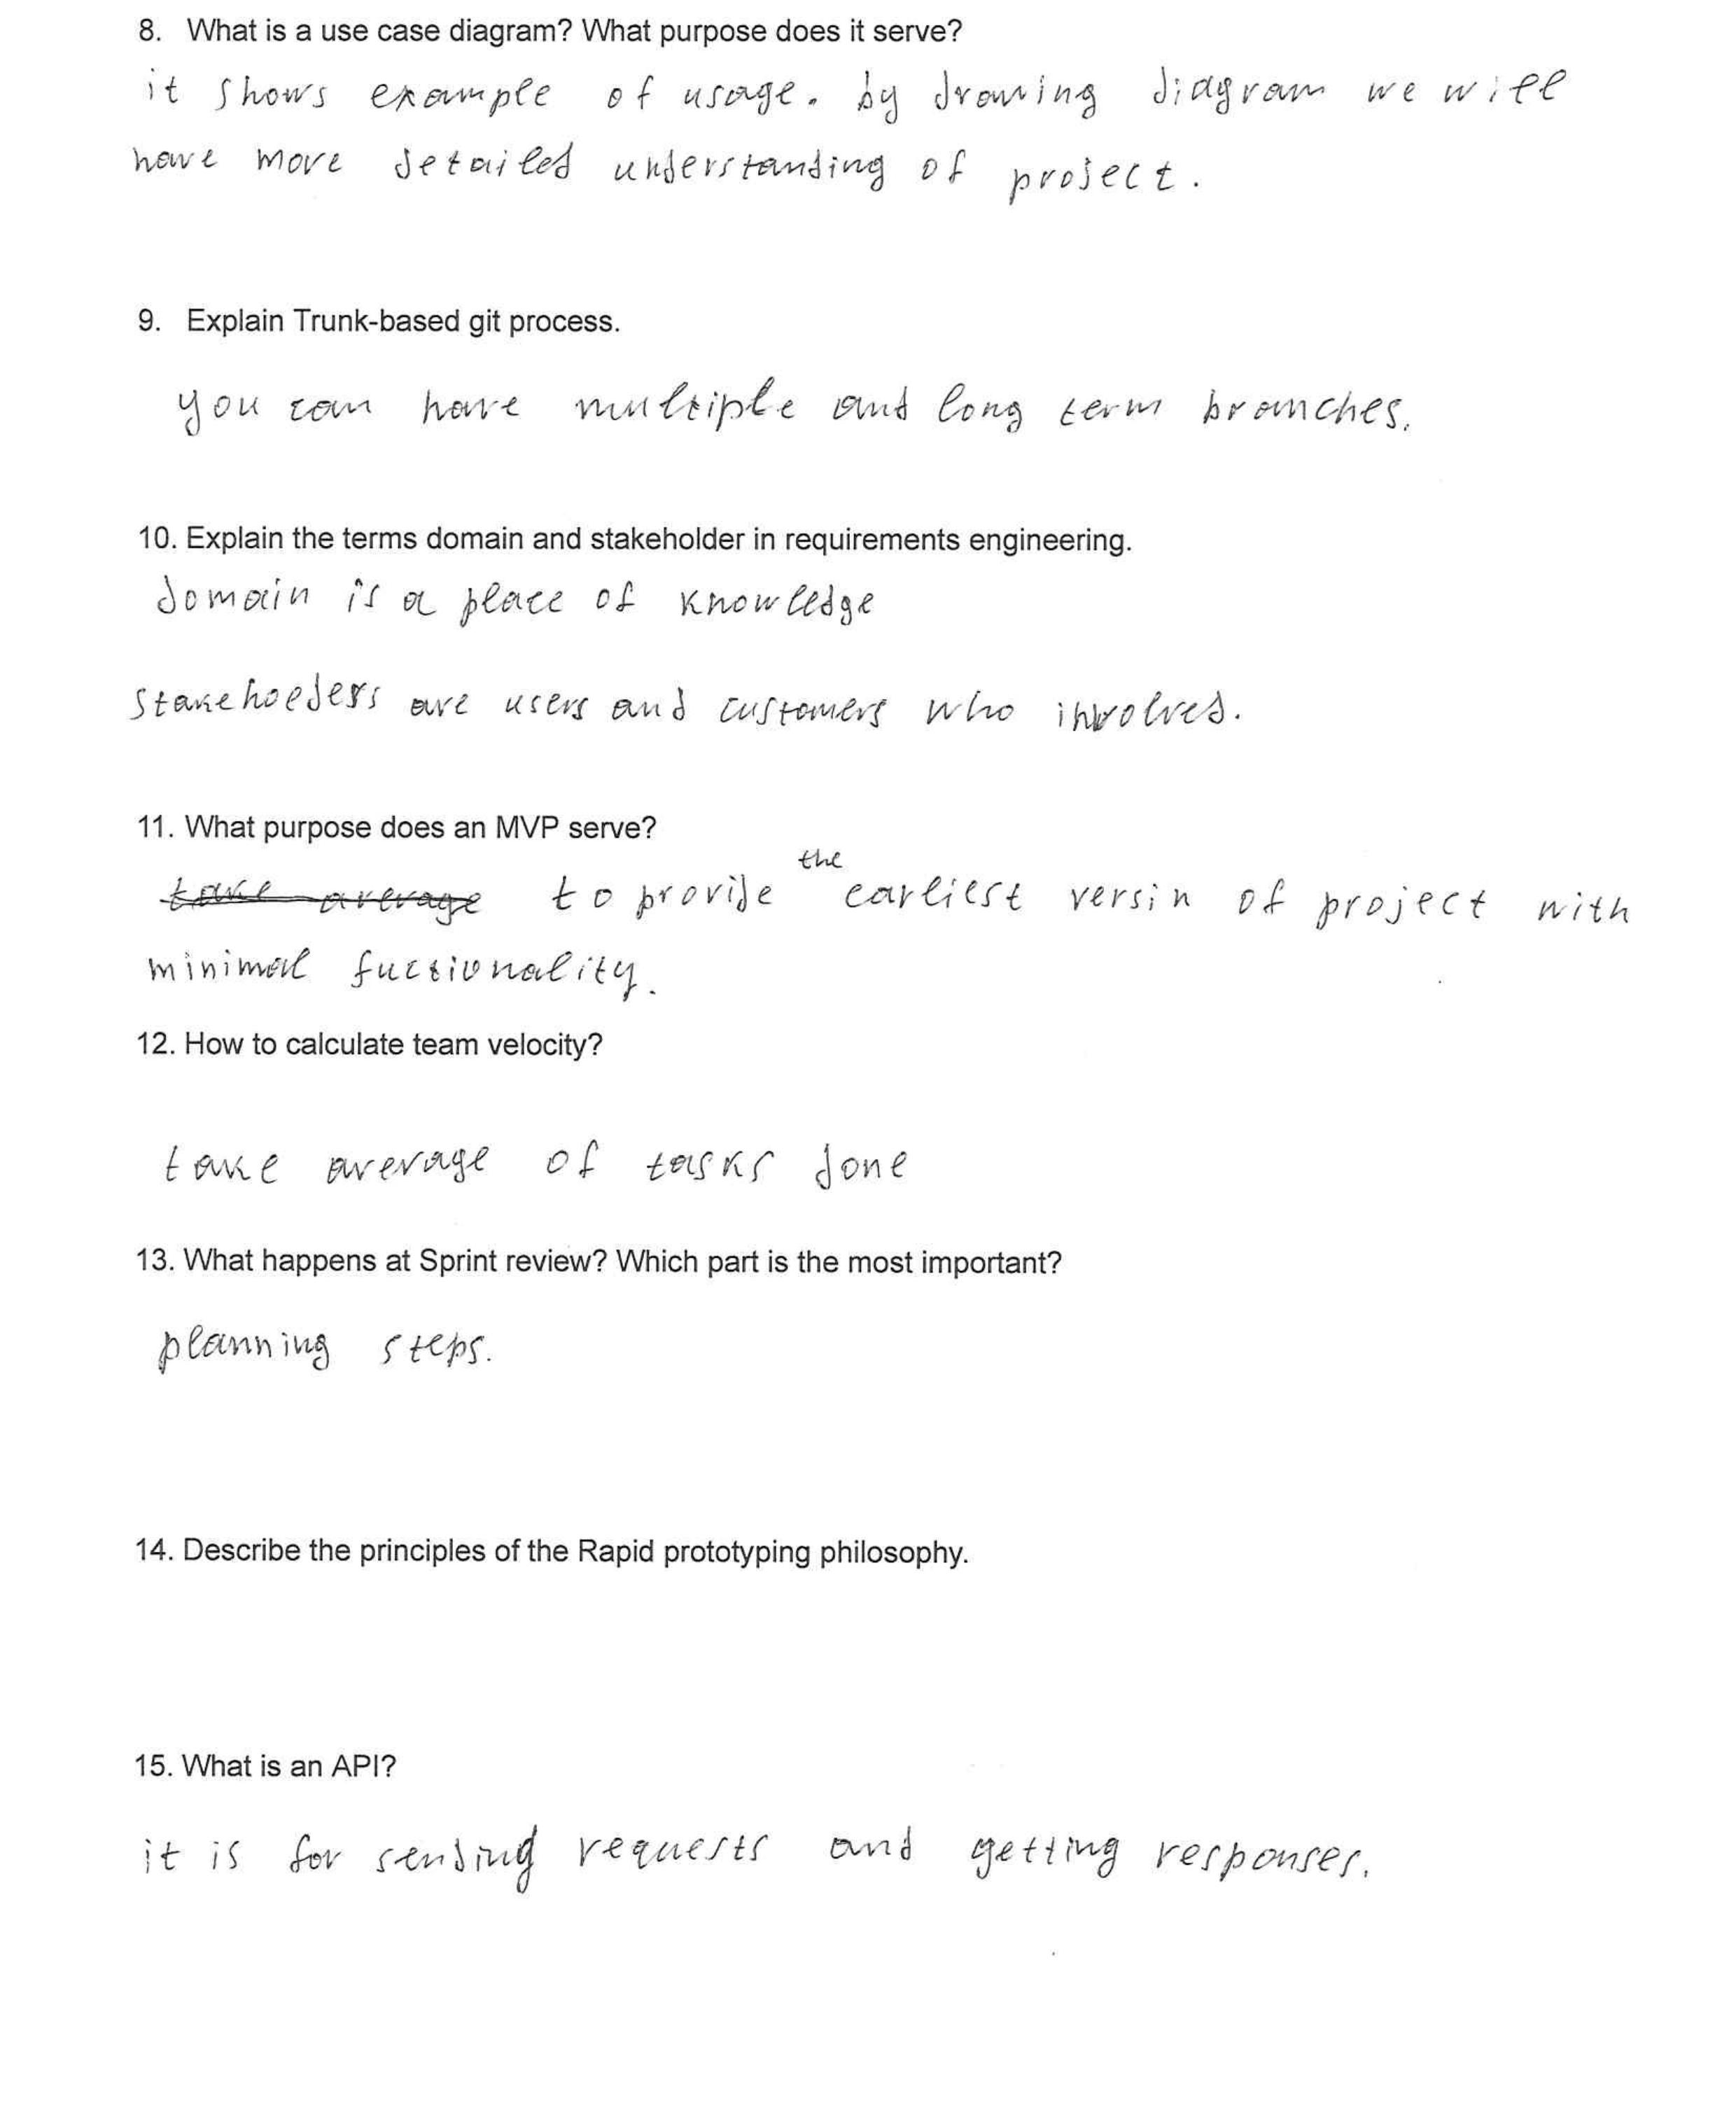 8. What is a use case diagram? What purpose does it serve?
it shows example of usage. by drawing diagram we will
have more detailed understanding of project.
9. Explain Trunk-based git process.
you can have multiple and long term branches.
10. Explain the terms domain and stakeholder in requirements engineering.
domain is a place of knowledge
stakeholders are users and customers who involved.
11. What purpose does an MVP serve?
take average to provide the earliest versin of project with
minimal fuctionality.
12. How to calculate team velocity?
take average of tasks done
13. What happens at Sprint review? Which part is the most important?
planning steps.
14. Describe the principles of the Rapid prototyping philosophy.
15. What is an API?
it is for sending requests and getting responses.